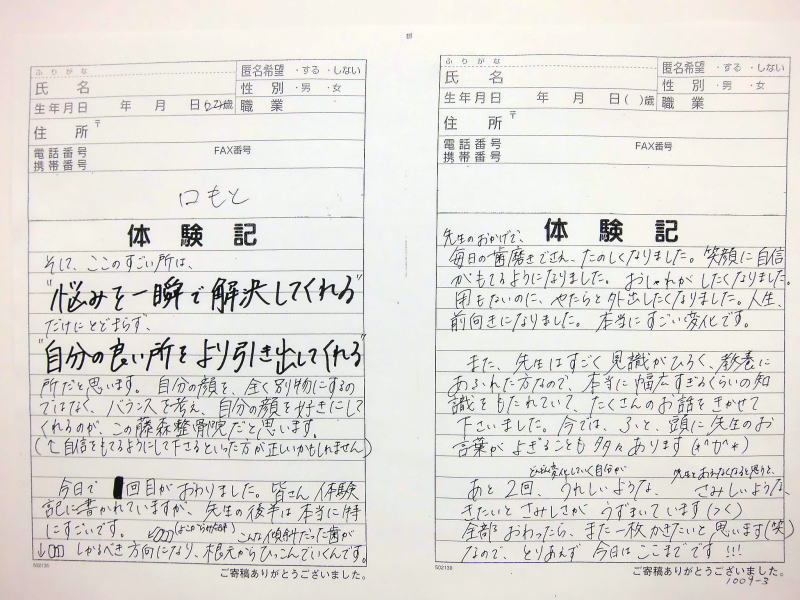 ふりがな
氏 名
匿名希望 ・する ・しない
性 別 ・男 ・女
生年月日 年 月 日(22)歳
職 業
住 所 〒
電話番号
携帯番号
FAX番号
口もと
体験記
そして、ここのすごい所は、
"悩みを一瞬で解決してくれる"
だけにとどまらず、
"自分の良い所をより引き出してくれる"
所だと思います。自分の顔を、全く別物にするの
ではなく、バランスを考え、自分の顔を好きにして
くれるのが、この藤森整骨院だと思います。
(↑自信をもてるようにして下さるといった方が正しいかもしれません)
今日で 回目がおわりました。皆さん体験
記に書かれていますが、先生の後半は本当に特
にすごいです。
こんな傾斜だった歯が
↓ しかるべき方向になり、根元からひっこんでいくんです。
502138
ご寄稿ありがとうございました。
ふりがな
氏 名
匿名希望 ・する ・しない
性 別 ・男 ・女
生年月日 年 月 日( )歳
職 業
住 所 〒
電話番号
携帯番号
FAX番号
体験記
先生のおかげで、
毎日の歯磨きでさえ、たのしくなりました。笑顔に自信
がもてるようになりました。おしゃれがしたくなりました。
用もないのに、やたらと外出したくなりました。人生、
前向きになりました。本当にすごい変化です。
また、先生はすごく見識がひろく、教養に
あふれた方なので、本当に幅広すぎるくらいの知
識をもたれていて、たくさんのお話をきかせて
下さいました。今では、ふと、頭に先生のお
言葉がよぎることも多々あります(*^ワ^*)
どんどん変化していく自分が
先生と会えなくなると思うと、
あと2回、うれしいような、さみしいような、
きたいとさみしさがうずまいています(つく)
全部おわったら、また一枚かきたいと思います(笑)
なので、とりあえず今日はここまでです!!!
502138
ご寄稿ありがとうございました。
1009-3